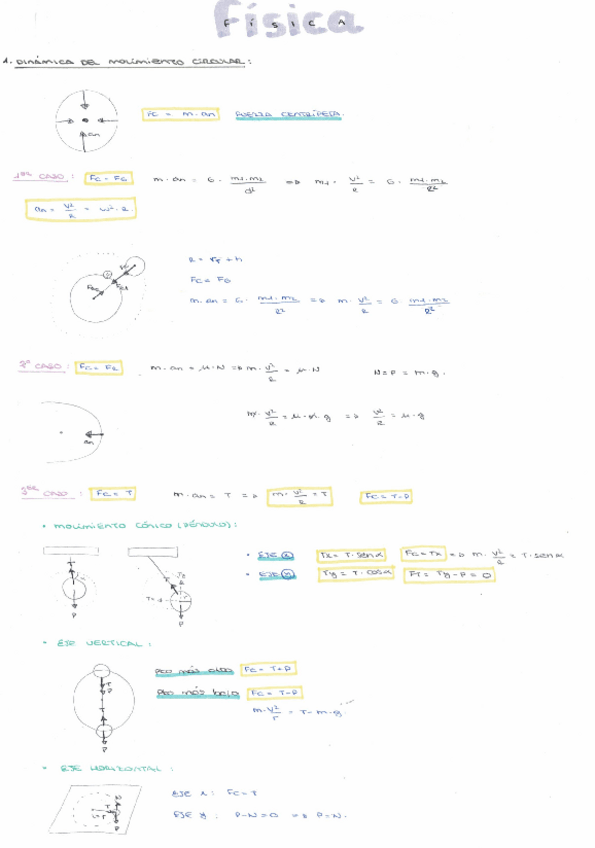 Física
FÍSICA
1. DINÁMICA DEL MOVIMIENTO CIRCULAR:
an
Fc = m·an FUERZA CENTRÍPETA.
1er CASO: Fc = FG m·an = G· m1·m2/d² => m1· v²/R = G· m1·m2/R²
an = v²/R = ω²·R.
R = rT + h
Fc = FG
m·an = G· m1·m2/R² => m· v²/R = G· m1·m2/R²
2º CASO: Fc = FR m·an = μ·N => m· v²/R = μ·N N = P = m·g.
an
m· v²/R = μ·m·g => v²/R = μ·g
3er CASO: Fc = T m·an = T => m· v²/R = T Fc = T-P
• MOVIMIENTO CÓNICO (PÉNDULO):
• EJE x Tx = T·senα Fc = Tx => m· v²/R = T·senα
• EJE y Ty = T·cosα FT = Ty - P = 0
T
P
T
P
• EJE VERTICAL:
Pto más alto Fc = T+P
Pto más bajo Fc = T-P
m· v²/r = T - m·g.
T
P
T
P
• EJE HORIZONTAL:
EJE x: Fc = T
EJE y: P-N=0 => P=N.